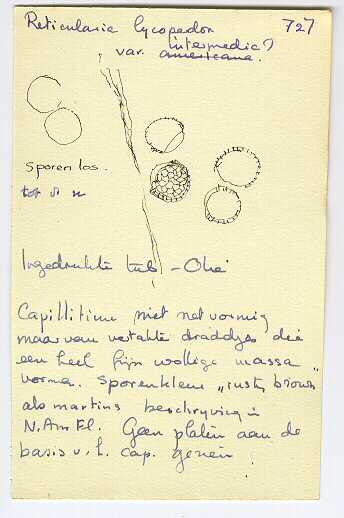 Reticularia lycoperdon 727
var. intermedia?
americana.
sporen los.
tot 8 µ
Ingedrukte tub - Ohé
Capillitium niet netvormig
maar van vertakte draadjes die
een heel fijn wollige massa
vormen. Sporenkleur „rusty brown"
als martins beschrijving in
N.Am Fl. Geen platen aan de
basis v.h. cap. gezien.